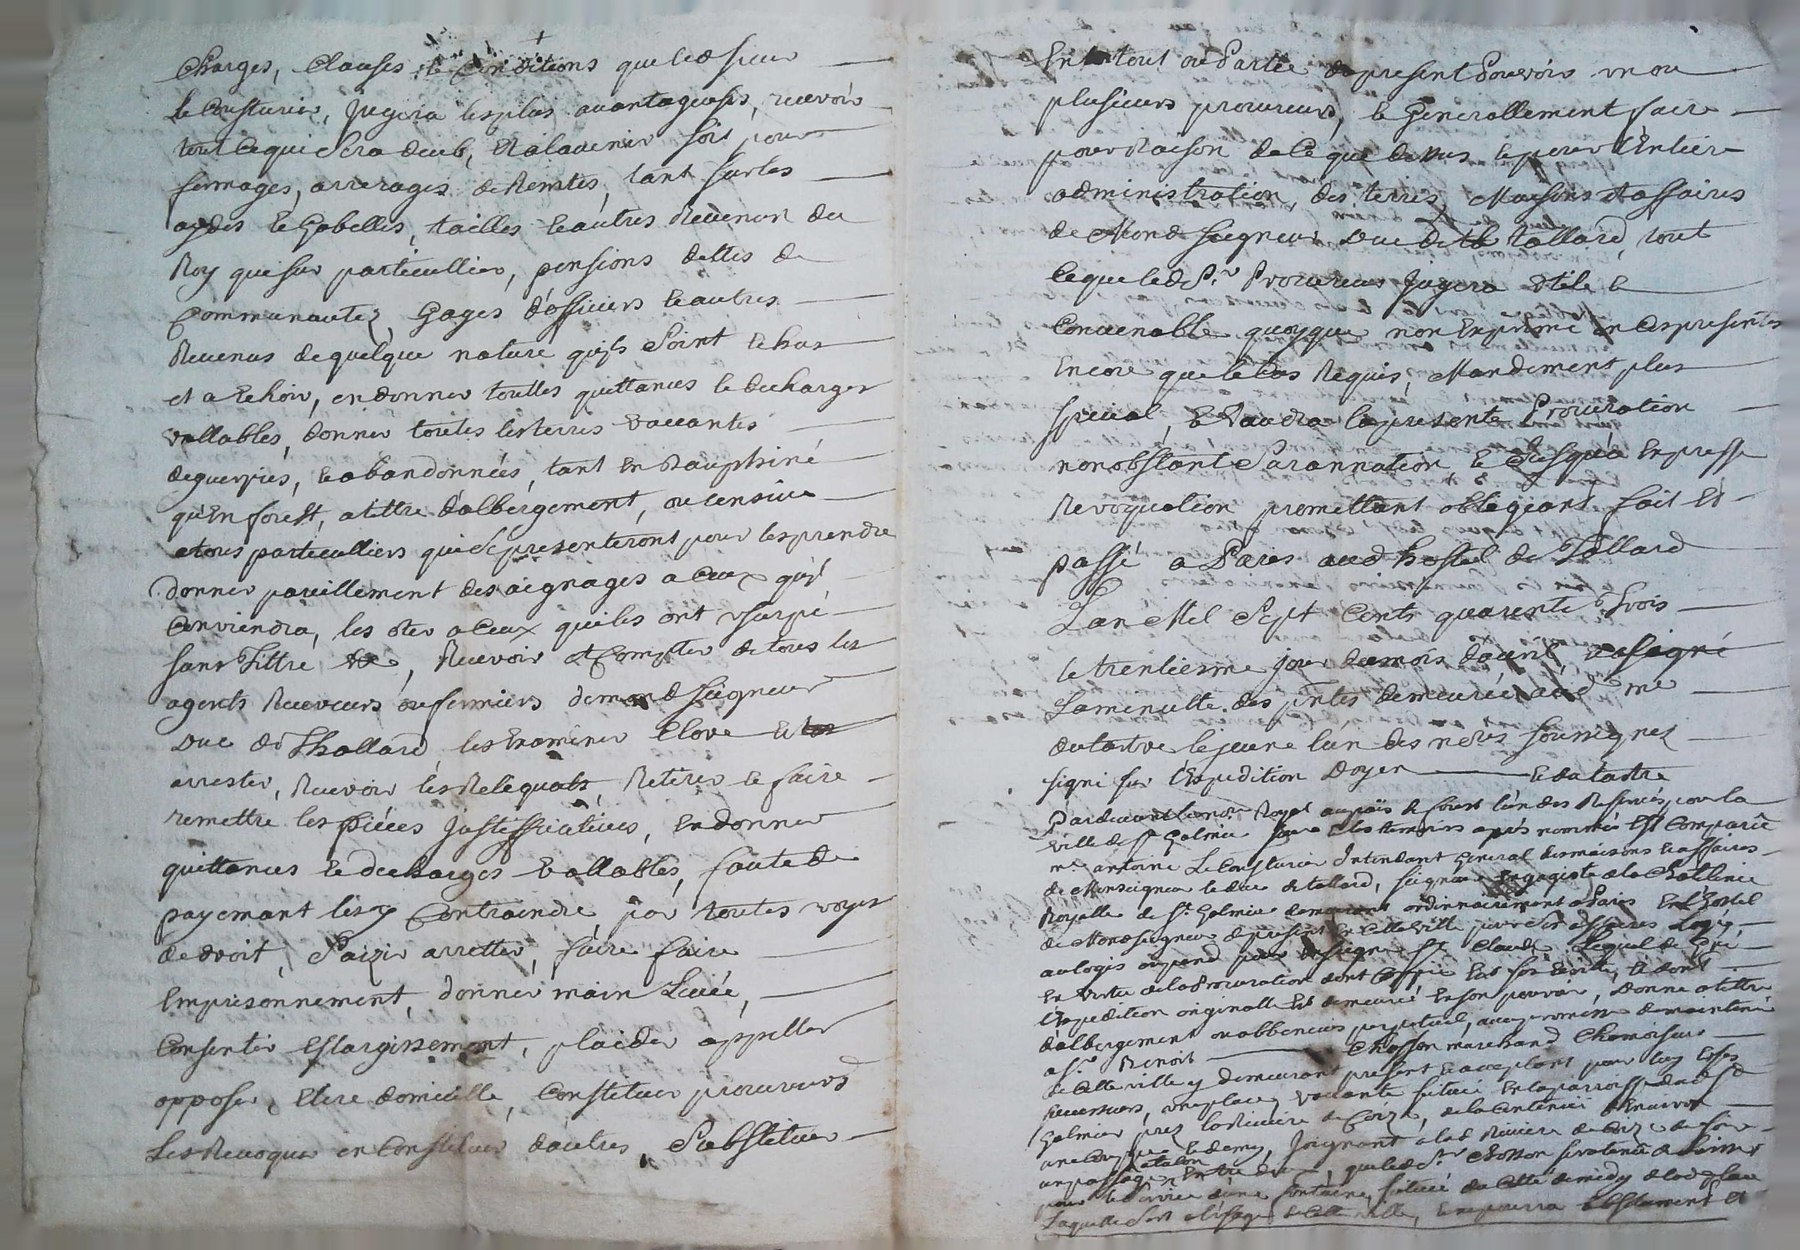 Charges, Clauses, & Conditions que led. sieur
le Consturier, Jugera les plus auantageuses, receuoir
tout ce qui sera deub, Et a lauenir soit pour
fermages, arrerages de Rentes, tant sur les
aydes & Gabelles, tailles & autres Reuenus du
Roy que sur particullier, pensions dettes de
Communautez, Gages d'officiers & autres
Reuenus de quelque nature quils Soint Echus
et a Echoir, en donner touttes quittances & decharges
vallables, donner toutes les terres vaccantes
deguerpies, & abandonnées, tant En Dauphiné
qu'En forest, a tittre d'albergement, ou censiue
a tous particulliers qui se presenteront pour les prendre
donner pareillement des aignages a Ceux qu'il
Conviendra, les oter a Ceux qui les ont Vsurpé
sans Tittre, Receuoir Et Compter de tous les
agents Receueurs ou fermiers de mond Seigneur
Duc de Thallard les Examiner Clore Et
arrester, Receuoir les Reliquats, Retirer & faire
remettre les pièces Justifficatiues, En donner
quittances & decharges Vallables, faute de
payemant les y Contraindre par toutes voyes
de droit, Saizir arretter, faire faire
Emprisonnement, donner main Leuée,
Consentir Eslargissement, plaider appeller
opposer, Elire domicille, Constituer procureurs
Les Reuoquer en Constituer d'autres, Substituer
En tout ou Partie du present Pouvoir un ou
plusieurs procureurs, & Generallement faire
pour Raison de Ce que dessus & pour l'Entiere
administration, des terres, Maisons & affaires
de Mond Seigneur Duc de Tallard, tout
Ce que led Sr. Procureur Jugera Vtile &
Conuenable quoyque non Exprimé En Ces presentes
Encore que le Cas Requis, Mandement plus
special, & Vaudra la presente Procuration
nonobstant Surannation, & Jusqu'a Expresse
Revoquation promettant obligeant fait Et
passé a Paris aud hostel de Tallard
L'an Mil Sept Cents quarente Trois
le trentiesme jour du mois d'auril, Et a signé
La minutte des pntes demeurée aud me
delatre le jeune l'un des nores soussignez
signé sur l'Expedition Doyen & delatre
Pardeuant le nore. Royal au païs de forest l'un des Reserués pour la
ville de St. Galmier les temoins apres nommés Est Comparu
me. antoine Le Consturier Intendant General des maisons & affaires
de Monseigneur le duc de tallard, seigneur Engagiste de la Chatlnie
Royalle de St. Galmier demeurant ordinnairement a Paris En l'hostel
de Mondseigneur de present En Cette Ville pour Ses affaires Logé,
au logis ou pend pour Enseigne St. Claude Lequel de Gré
En Vertu de la Procuration dont Coppie Est sus Ecrite, & dont
l'Expedition originalle Est demeuré En son pouvoir, Donne a tittre
d'albergement ou abbeneuis perpetuel, auec promesse de maintenir
a Sr. Benoit Chosson marchand Chamoiseur
de Cette ville y demeurant present & acceptant pour luy & ses
successeurs, une place vaccante située En la parroisse dud St
Galmier prez la Riuiere de Coize, de la Contenüe d'Enuiron
une Couppe & demy, Joignant a lad Riuiere de Coize de soir
un passage Entre deux, que led Sr. Chosson sera tenu de laisser
pour le seruice d'une fontaine, située du Cotté de midy de lad place
Laquelle Sert a l'usage de Cette ville,